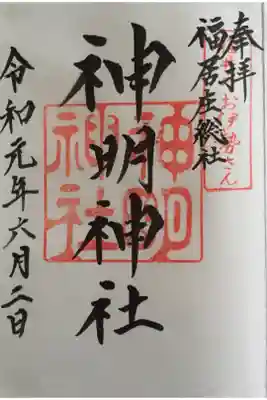 奉拝
福居庄総社
おいせさん
神明神社
神明
神社
令和元年六月二日